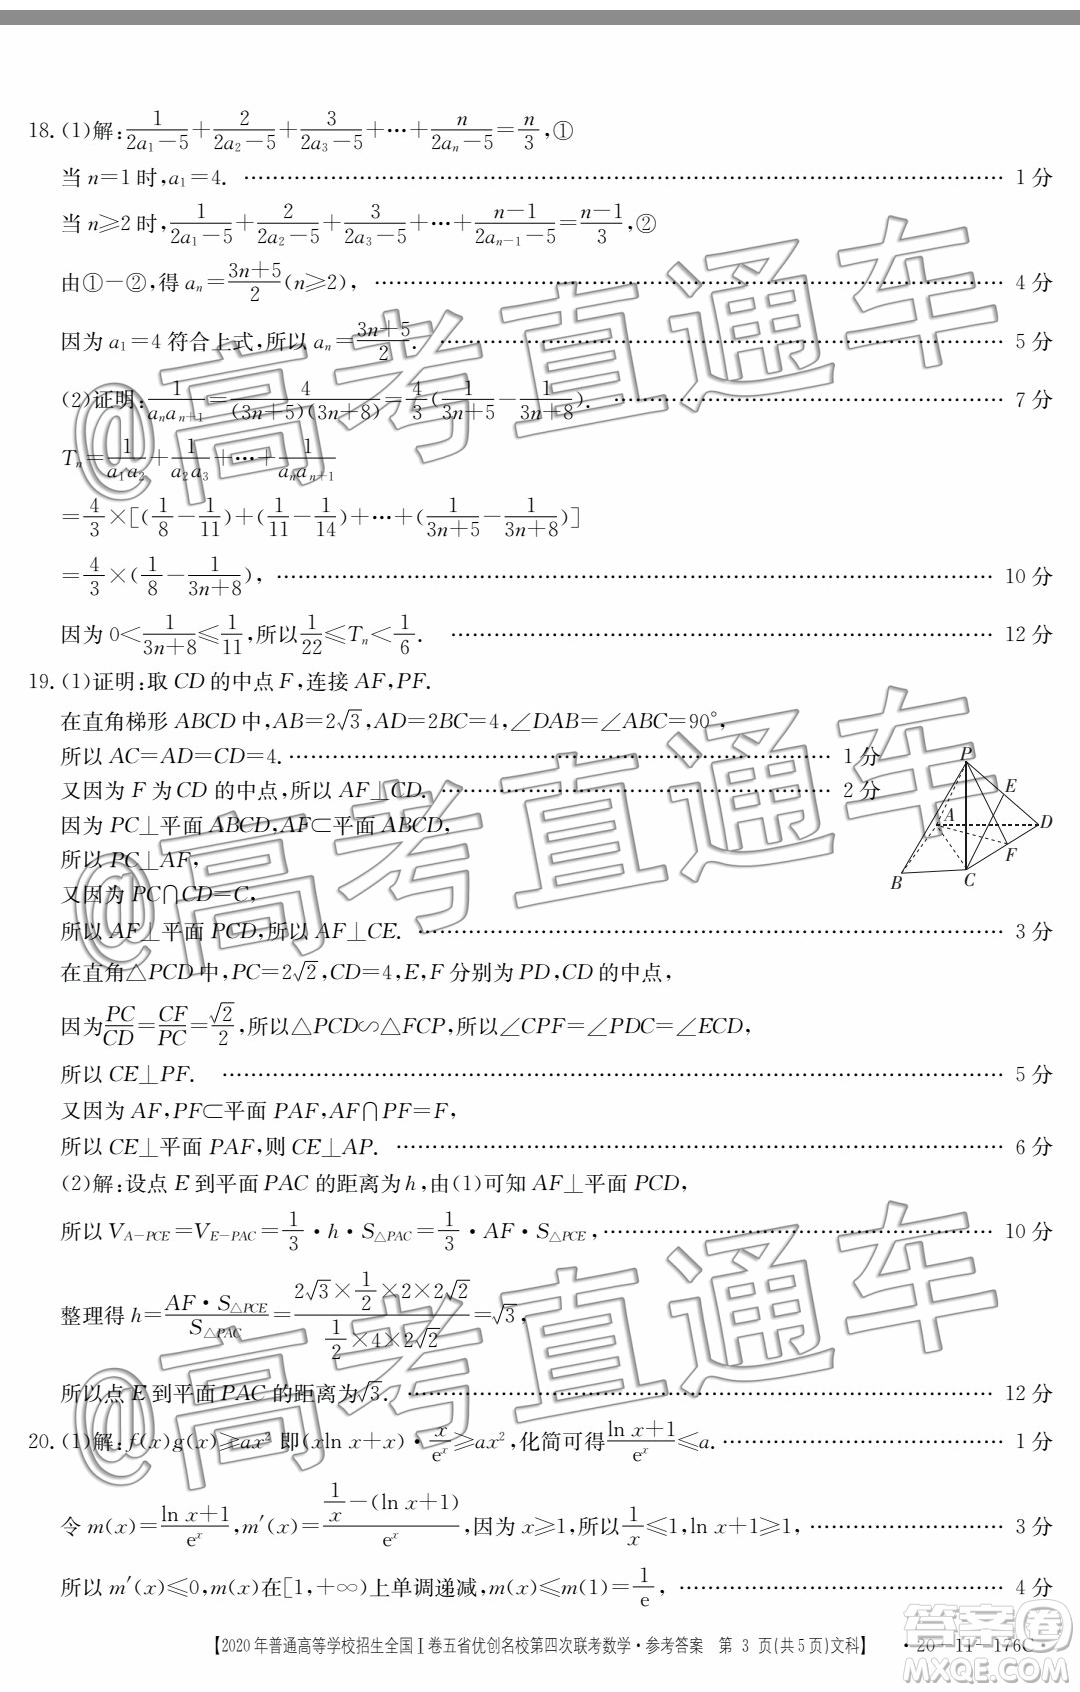 18.(1)解:1/(2a₁−5)+2/(2a₂−5)+3/(2a₃−5)+⋯+n/(2aₙ−5)=n/3,①
当 n=1 时,a₁=4. ………… 1 分
当 n≥2 时,1/(2a₁−5)+2/(2a₂−5)+3/(2a₃−5)+⋯+(n−1)/(2aₙ₋₁−5)=(n−1)/3,②
由①−②,得 aₙ=(3n+5)/2(n≥2), ………… 4 分
因为 a₁=4 符合上式,所以 aₙ=(3n+5)/2. ………… 5 分
(2)证明:1/(aₙaₙ₊₁)=4/((3n+5)(3n+8))=4/3(1/(3n+5)−1/(3n+8)). ………… 7 分
Tₙ=1/(a₁a₂)+1/(a₂a₃)+⋯+1/(aₙaₙ₊₁)
=4/3×[(1/8−1/11)+(1/11−1/14)+⋯+(1/(3n+5)−1/(3n+8))]
=4/3×(1/8−1/(3n+8)), ………… 10 分
因为 0<1/(3n+8)≤1/11,所以1/22≤Tₙ<1/6. ………… 12 分
19.(1)证明:取 CD 的中点 F,连接 AF,PF.
在直角梯形 ABCD 中,AB=2√3,AD=2BC=4,∠DAB=∠ABC=90°,
所以 AC=AD=CD=4. ………… 1 分
又因为 F 为 CD 的中点,所以 AF⊥CD. ………… 2 分
因为 PC⊥平面 ABCD,AF⊂平面 ABCD,
所以 PC⊥AF,
又因为 PC∩CD=C,
所以 AF⊥平面 PCD,所以 AF⊥CE. ………… 3 分
P
E
A
D
F
B
C
在直角△PCD 中,PC=2√2,CD=4,E,F 分别为 PD,CD 的中点,
因为PC/CD=CF/PC=√2/2,所以△PCD∽△FCP,所以∠CPF=∠PDC=∠ECD,
所以 CE⊥PF. ………… 5 分
又因为 AF,PF⊂平面 PAF,AF∩PF=F,
所以 CE⊥平面 PAF,则 CE⊥AP. ………… 6 分
(2)解:设点 E 到平面 PAC 的距离为 h,由(1)可知 AF⊥平面 PCD,
所以 V_{A−PCE}=V_{E−PAC}=1/3·h·S_{△PAC}=1/3·AF·S_{△PCE}, ………… 10 分
整理得 h=(AF·S_{△PCE})/S_{△PAC}=(2√3×1/2×2×2√2)/(1/2×4×2√2)=√3,
所以点 E 到平面 PAC 的距离为√3. ………… 12 分
20.(1)解:f(x)g(x)≥ax² 即(xln x+x)·x/eˣ≥ax²,化简可得(ln x+1)/eˣ≤a. ………… 1 分
令 m(x)=(ln x+1)/eˣ,m′(x)=(1/x−(ln x+1))/eˣ,因为 x≥1,所以1/x≤1,ln x+1≥1, ………… 3 分
所以 m′(x)≤0,m(x)在[1,+∞)上单调递减,m(x)≤m(1)=1/e, ………… 4 分
【2020 年普通高等学校招生全国Ⅰ卷五省优创名校第四次联考数学·参考答案 第 3 页(共 5 页)文科】 ·20−11−176C·
@高考直通车
@高考直通车
@高考直通车
答案圈
MXQE.COM